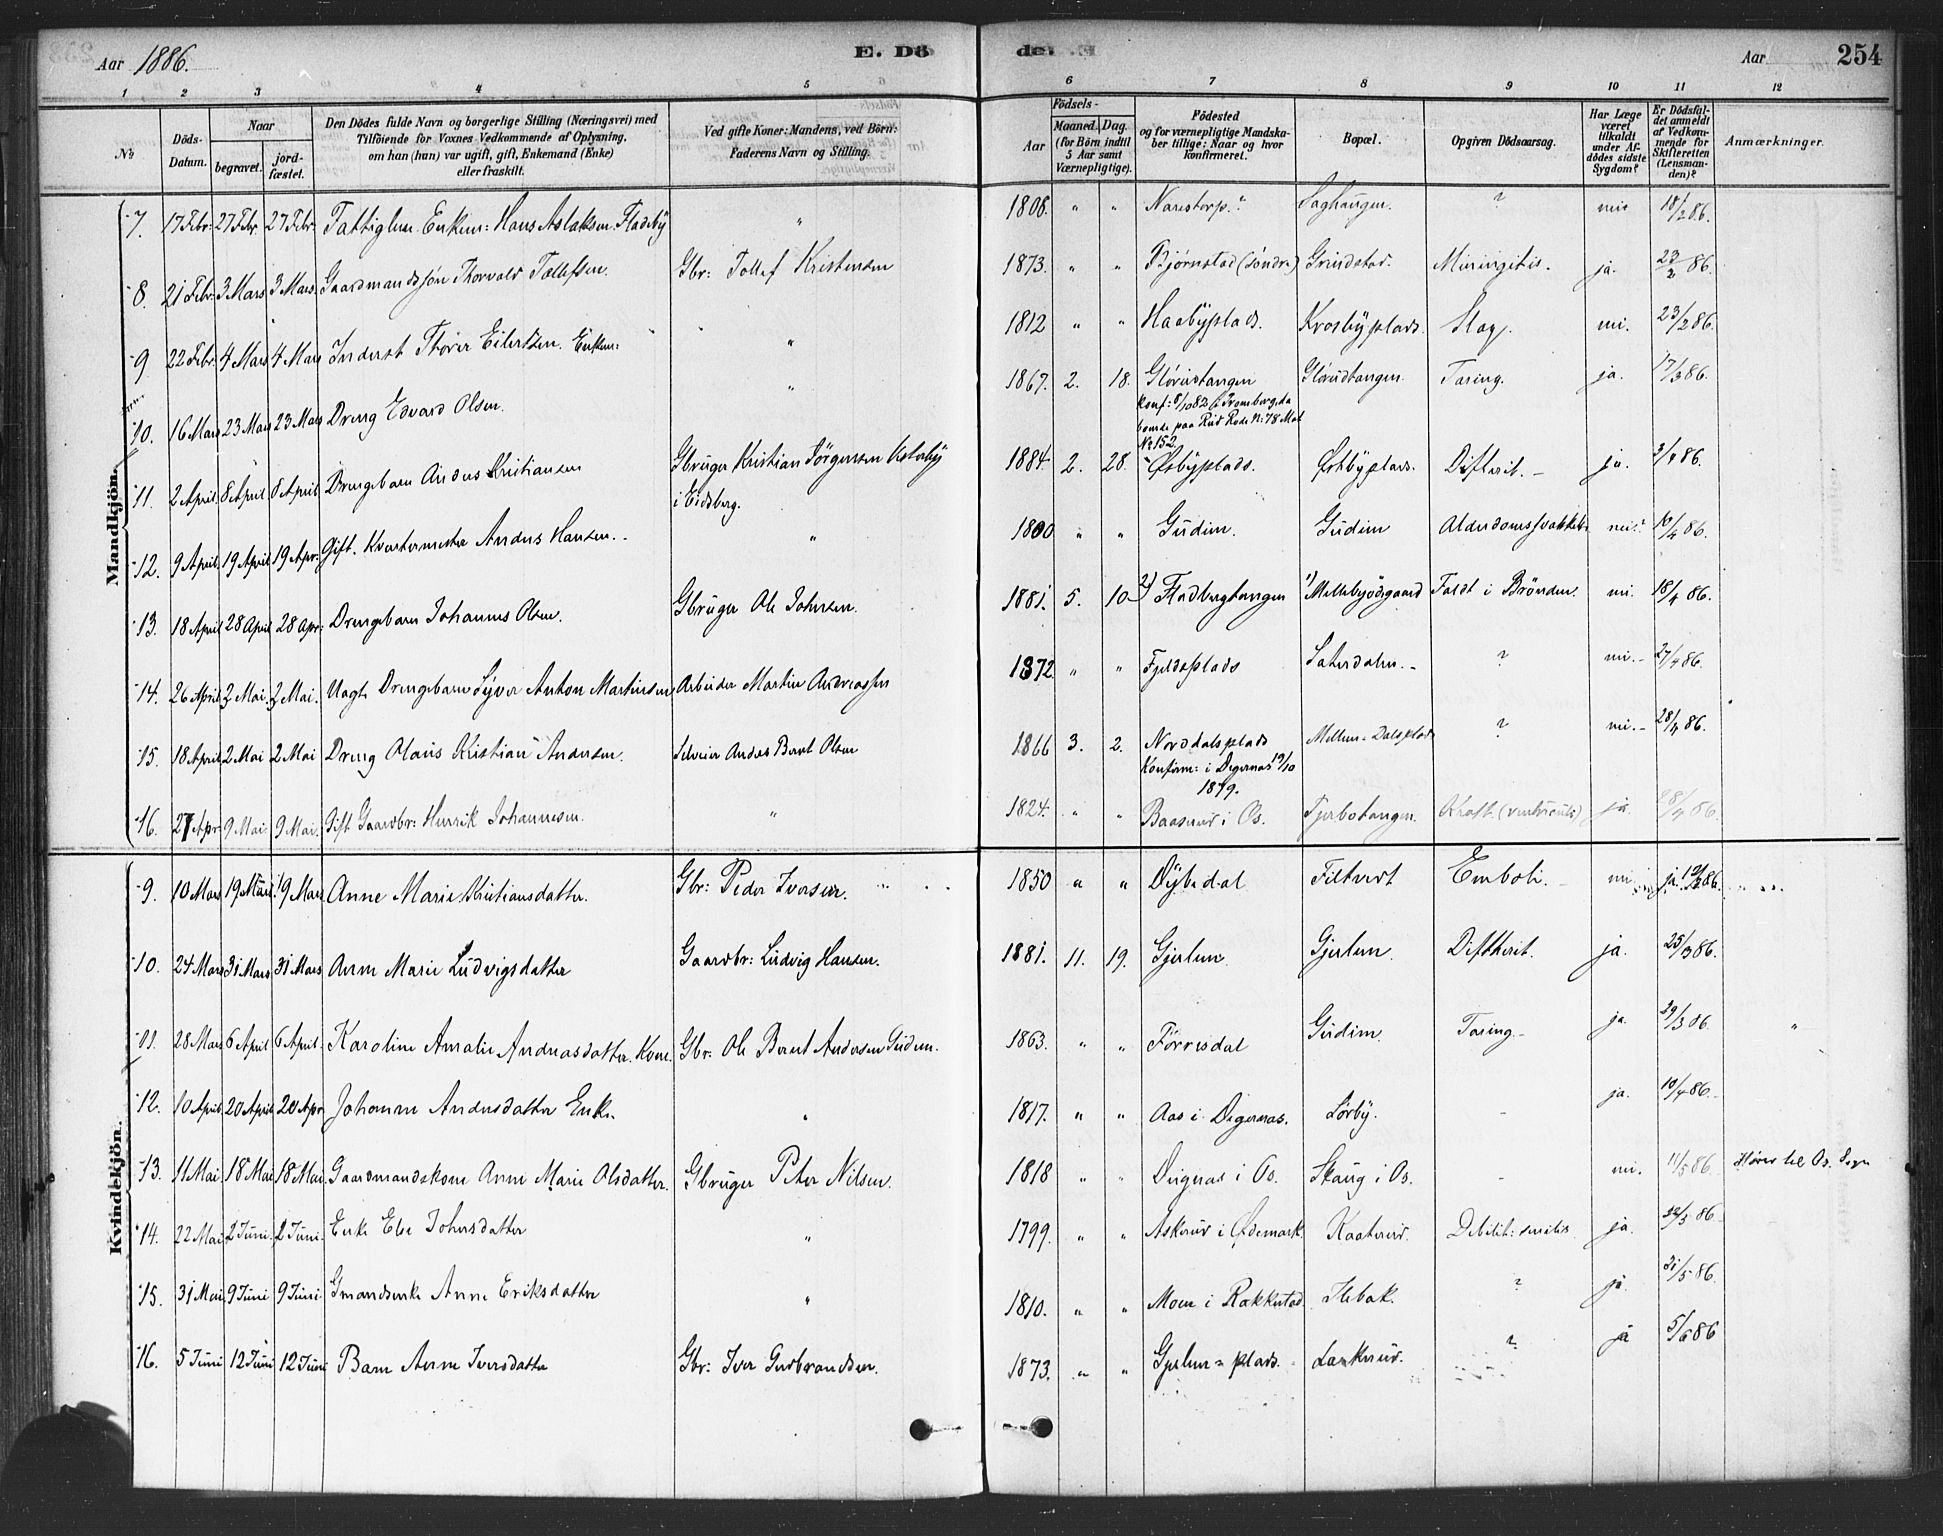 Aar 1886. E. Dö de. Aar 254
1 2 3 4 5 6 7 8 9 10 11 12
No Döds-Datum. Naar begravet. jordfæstet. Den Dödes fulde Navn og borgerlige Stilling (Næringsvei) med Tilföiende for Voxnes Vedkommende af Oplysning, om han (hun) var ugift, gift, Enkemand (Enke) eller fraskilt. Ved gifte Koner: Mandens, ved Börn: Faderens Navn og Stilling. Födsels- Aar Maaned. Dag. (for Börn indtil 5 Aar samt Værnepligtige). Födested og for værnepligtige Mandskaber tillige: Naar og hvor konfirmeret. Bopæl. Opgiven Dödsaarsag. Har Læge været tilkaldt under Afdödes sidste Sygdom? Er Dödsfaldet anmeldt af Vedkommende for Skifteretten (Lensmanden)? Anmærkninger.
Mandkjön.
7. 17 Febr: 27 Febr. 27 Febr. Fattiglem Enkem: Hans Aslaksen Fladeby " 1808. " " Narestorp." Saghaugen. ? nei 18/2 86.
8. 21 Febr. 3 Mars 3 Mars. Gaardmandssön Thorvald Tollefsen. Gbr: Tollef Kristensen 1873. " " Bjørnstad (söndre) Grindstad. Miningitis. ja. 23/2 86.
9 22 Febr. 4 Mars 4 Mars Inderst Thorer Eilertsen. Enkem: " 1812 " " Haabyplads. Krosbyplads. Slag. nei. 23/2 86.
10. 16 Mars 23 Mars 23 Mars Dreng Edvard Olsen. " 1867. 2. 18. Glörudtangen Konf: 8/10 82 i Tromborg, da boende paa Rud Rode N: 78 Mat No 152. Glörudtangen. Tæring. ja. 17/3 86.
11. 2 April. 8 April 8 April Drengebarn Anders Kristiansen Gbruger Kristian Jörgensen Østeby i Eidsberg. 1884. 2. 28. Østbyplads. Østbyplads. Difterit. ja. 3/4 86.
12. 9 April. 19 April 19 Apr. Gift. Kvartermester Anders Hansen. " 1800 " " Gudim. Gudim Alderdomssvakhed nei? 10/4 86.
13. 18 April 28 April 28 Apr: Drengebarn Johannes Olsen. Gbruger Ole Johnsen. 1881. 5. 10. 2) Fladbergtangen 1) Mellebyödegaard Faldt i Brönden. nei. 18/4 86.
14. 26 April 2 Mai. 2 Mai. Uægte Drengebarn Syver Anton Martinsen Arbeider Martin Andreassen 1872 " " Fjeldsplads Saterdalen. ? nei. 27/4 86.
15. 18 April 2 Mai 2 Mai Dreng Olaus Kristian Andersen. Selveier Anders Bernt Olsen 1866 3. 2. Norddalsplads Konfirm: i Degernæs 19/10 1879. Mellem-Dalsplads ? nei. 28/4 86.
16. 27 Apr 9 Mai. 9 Mai. Gift Gaardbr: Henrik Johannesen. " 1824. " " Baaserud i Os. Tjerbotangen. Kræft. (ventriculi) ja. 28/4 86.
Kvindekjön.
9. 10 Mars 19 Mars 19 Mars Anne Marie Kristiansdatter. Gbr: Peder Iversen. 1850 " " Dybedal Filtvedt Emboli. nei ja. 86.
10. 24 Mars 31 Mars 31 Mars Anne Marie Ludvigsdatter Gaardbr: Ludvig Hansen. 1881. 11. 19. Gjerlem. Gjerlem. Diftherit. ja. 25/3 86.
11. 28 Mars 6 April 6 April. Karoline Amalie Andreasdatter. Kone. Gbr. Ole Bernt Andersen Gudim. 1863. " " Förrisdal Gudim. Tæring. ja. 29/3 86. "
12. 10 April 20 April 20 Apr Johanne Andersdatter Enke. " 1817. " " Aas i Degernæs. Lörby. - ja. 10/4 86.
13. 11 Mai 18 Mai 18 Mai. Gaardmandskone Anne Marie Olsdatter. Gbruger Peter Nilsen. 1818 " " Degnæs i Os. Skaug i Os. - nei. 11/5 86. Hører til Os. Sogn
14. 22 Mai 2 Juni. 2 Juni. Enke Else Johnsdatter " 1799. " " Askerud i Ødemark. Kaaterud. Debilit: senilis. ja. 22/5 86.
15. 31 Mai 9 Juni 9 Juni. Gmandsenke Anne Eriksdatter " 1810. " " Moen i Rakkestad. Ilebæk. ? ja. 31/5 86.
16. 5 Juni 12 Juni 12 Juni Barn Anne Iversdatter Gbr: Iver Gudbrandsen. 1873. " " Gjerlem-plads. Laskerud. ? ja 5/6 86